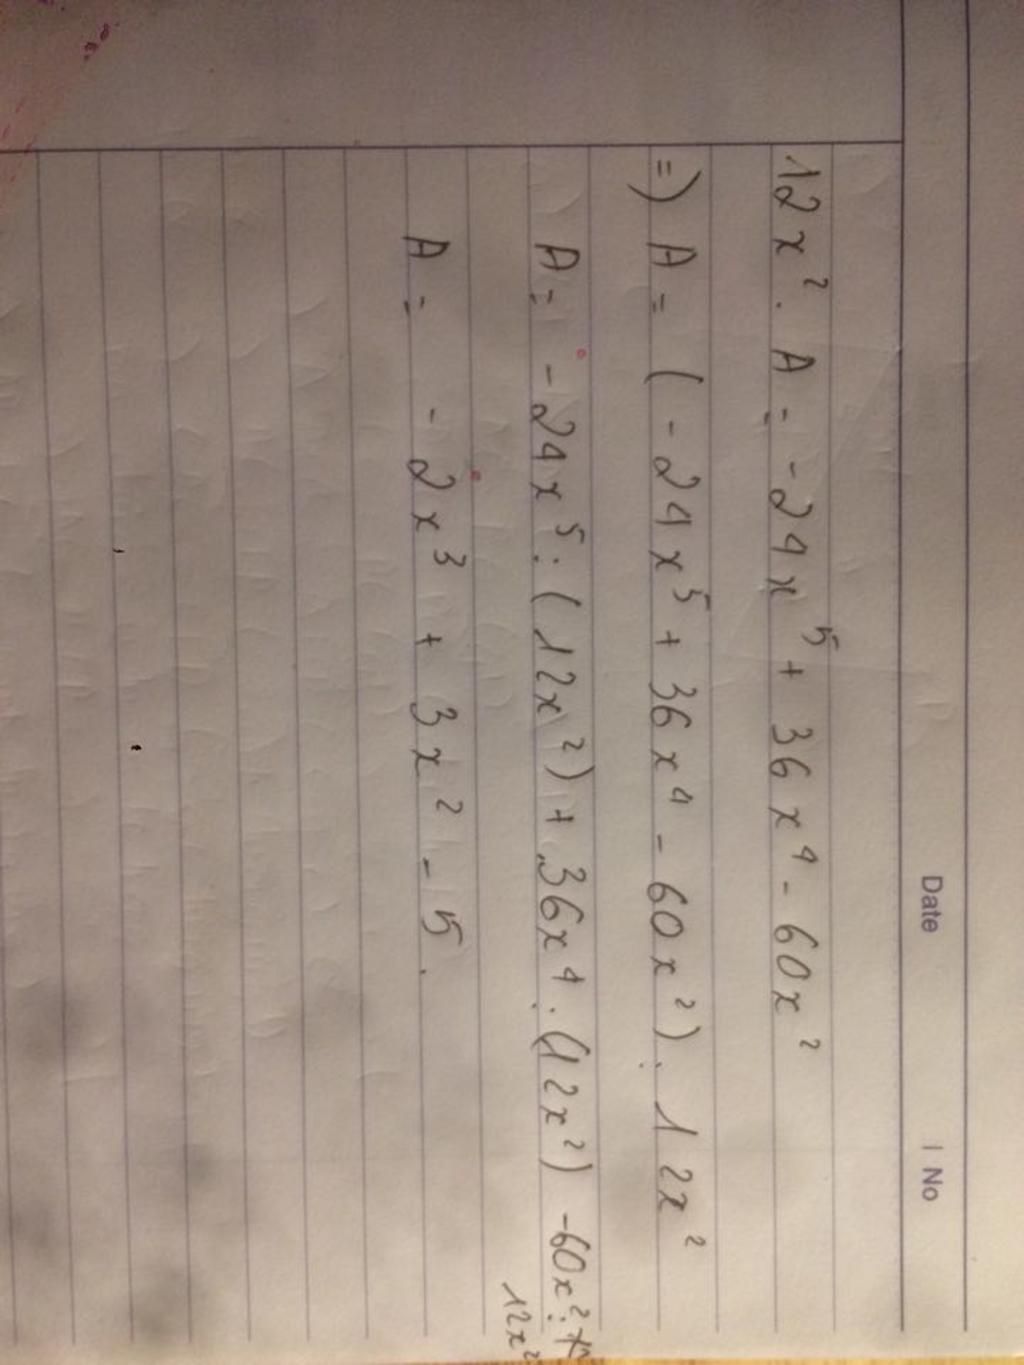 Date | No
12x². A = -24x⁵ + 36x⁴ - 60x²
=) A = (-24x⁵ + 36x⁴ - 60x²) : 12x²
A = -24x⁵ : (12x²) + 36x⁴ : (12x²) -60x² :
12x²
A = -2x³ + 3x² - 5.